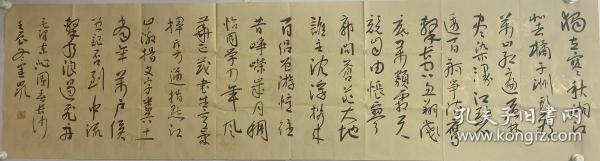 独立寒秋湘江
北去橘子洲头看
万山红遍层林
尽染漫江碧
透百舸争流鹰
击长空鱼翔浅
底万类霜天
竞自由怅寥
廓问苍茫大地
谁主沉浮携来
百侣曾游忆往
昔峥嵘岁月稠
恰同学少年风
华正茂书生意气
挥斥方遒指点江
山激扬文字粪土
当年万户侯
曾记否到中流
击水浪遏飞舟
毛泽东沁园春长沙
壬辰冬